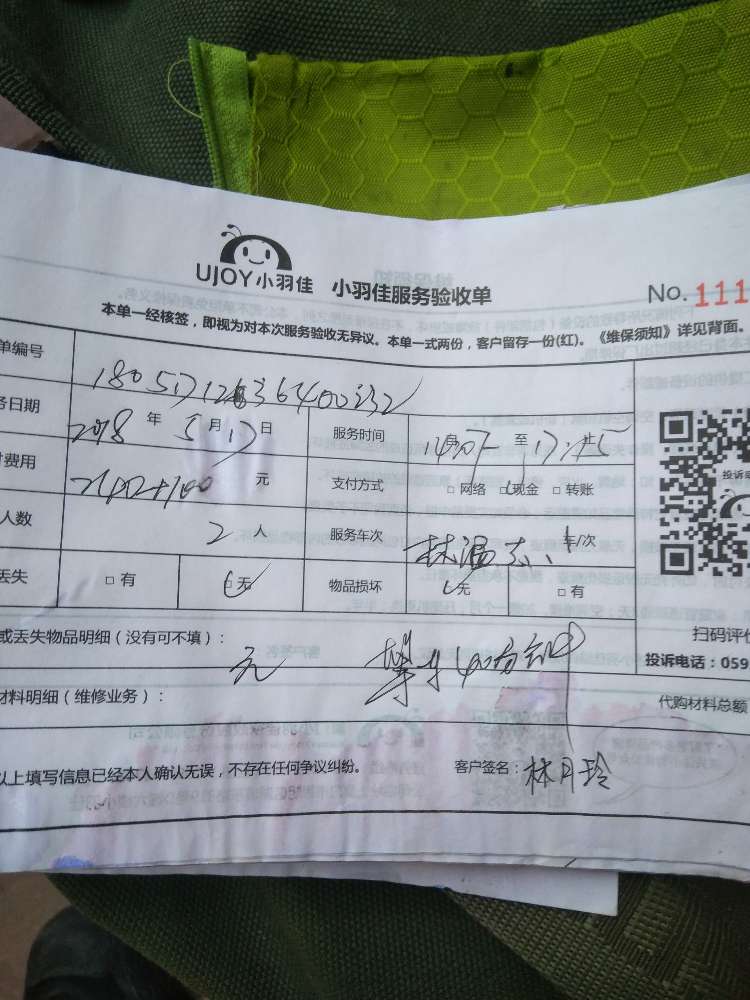 UJOY小羽佳 小羽佳服务验收单 No.111
本单一经核签，即视为对本次服务验收无异议。本单一式两份，客户留存一份(红)。《维保须知》详见背面。
单编号
务日期 2018 年 5 月 17 日 服务时间 至
费用 元 支付方式 □ 网络 □ 现金 □ 转账
人数 2 人 服务车次 车/次
丢失 □ 有 □ 无 物品损坏 □ 无 □ 有
或丢失物品明细（没有可不填）： 扫码评价
投诉电话：059
材料明细（维修业务）： 代购材料总额
以上填写信息已经本人确认无误，不存在任何争议纠纷。 客户签名：林月玲